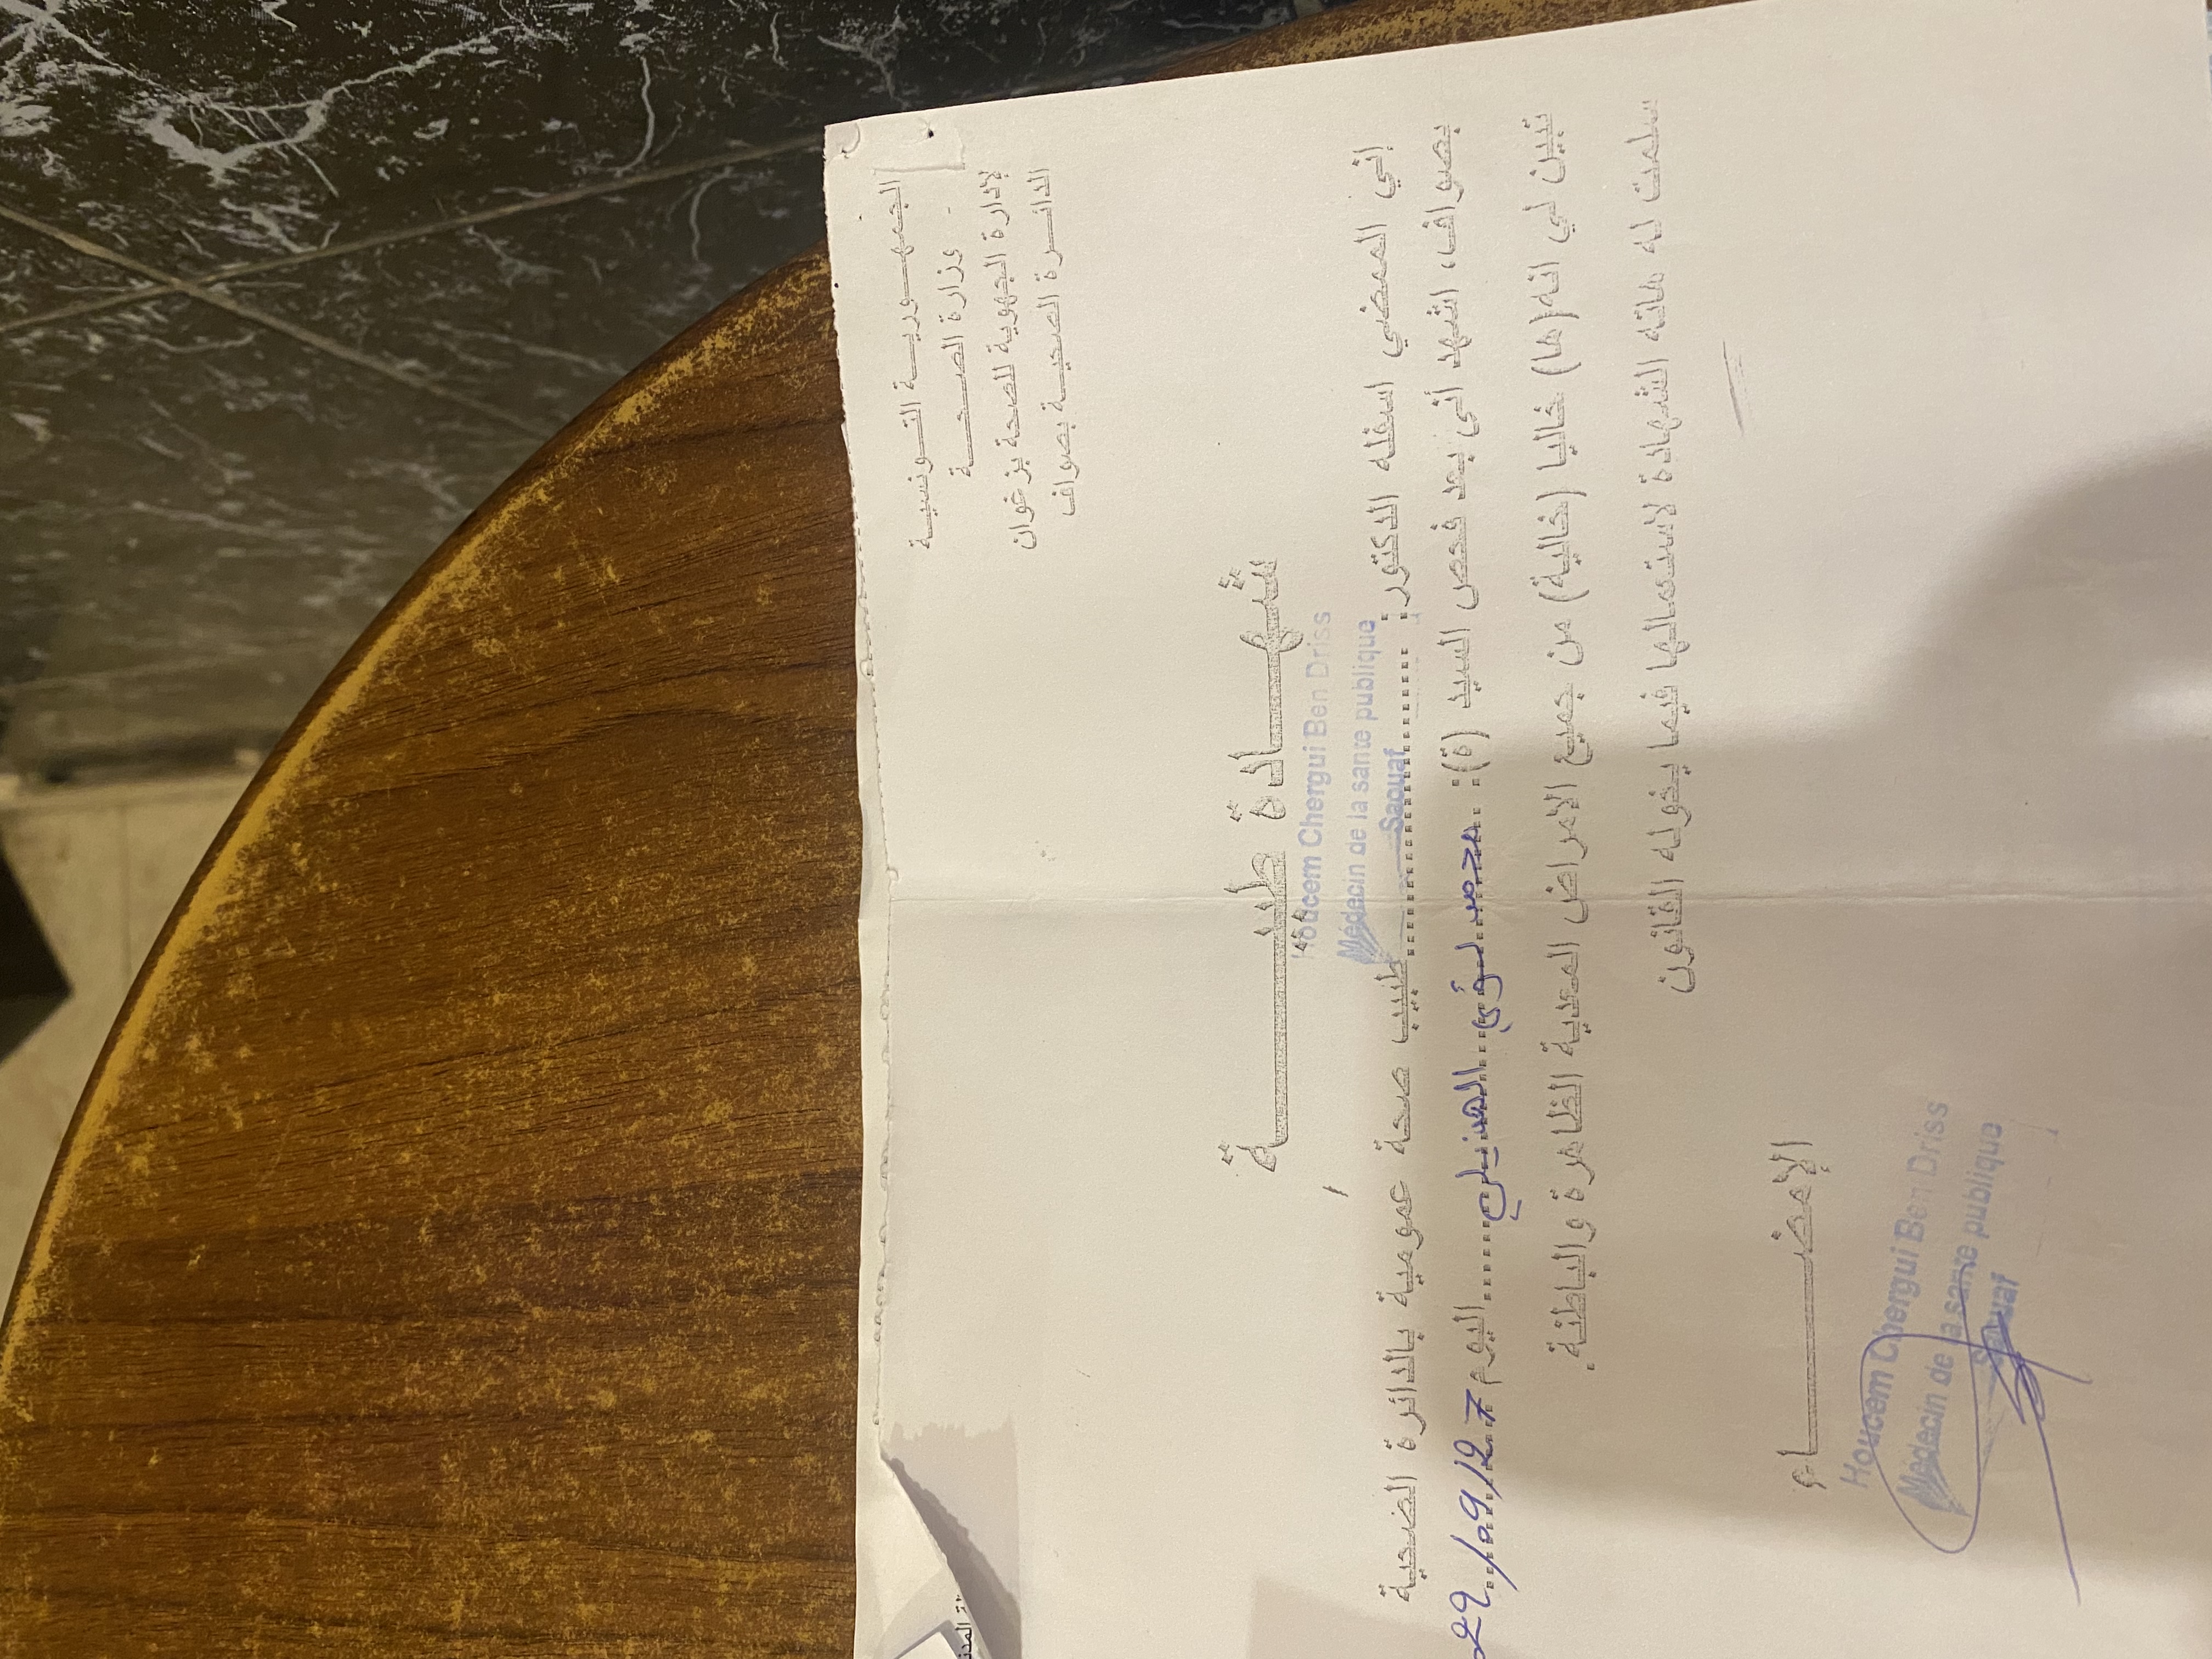 الجمهورية التونسية
وزارة الصحة
الإدارة الجهوية للصحة بزغوان
الدائرة الصحية بصواف
شهادة طبية
Houcem Chergui Ben Driss
Médecin de la sante publique
Saouaf
إني الممضي اسفله الدكتور: طبيب صحة عمومية بالدائرة الصحية
بصواف، اشهد أني بعد فحص السيد (ة): محمد لؤي الهذيلي اليوم
تبين لي انه(ها) خاليا (خالية) من جميع الامراض المعدية الظاهرة والباطنة.
سلمت له هاته الشهادة لاستعمالها فيما يخوله القانون
الإمضاء
Houcem Chergui Ben Driss
Médecin de la sante publique
Saouaf